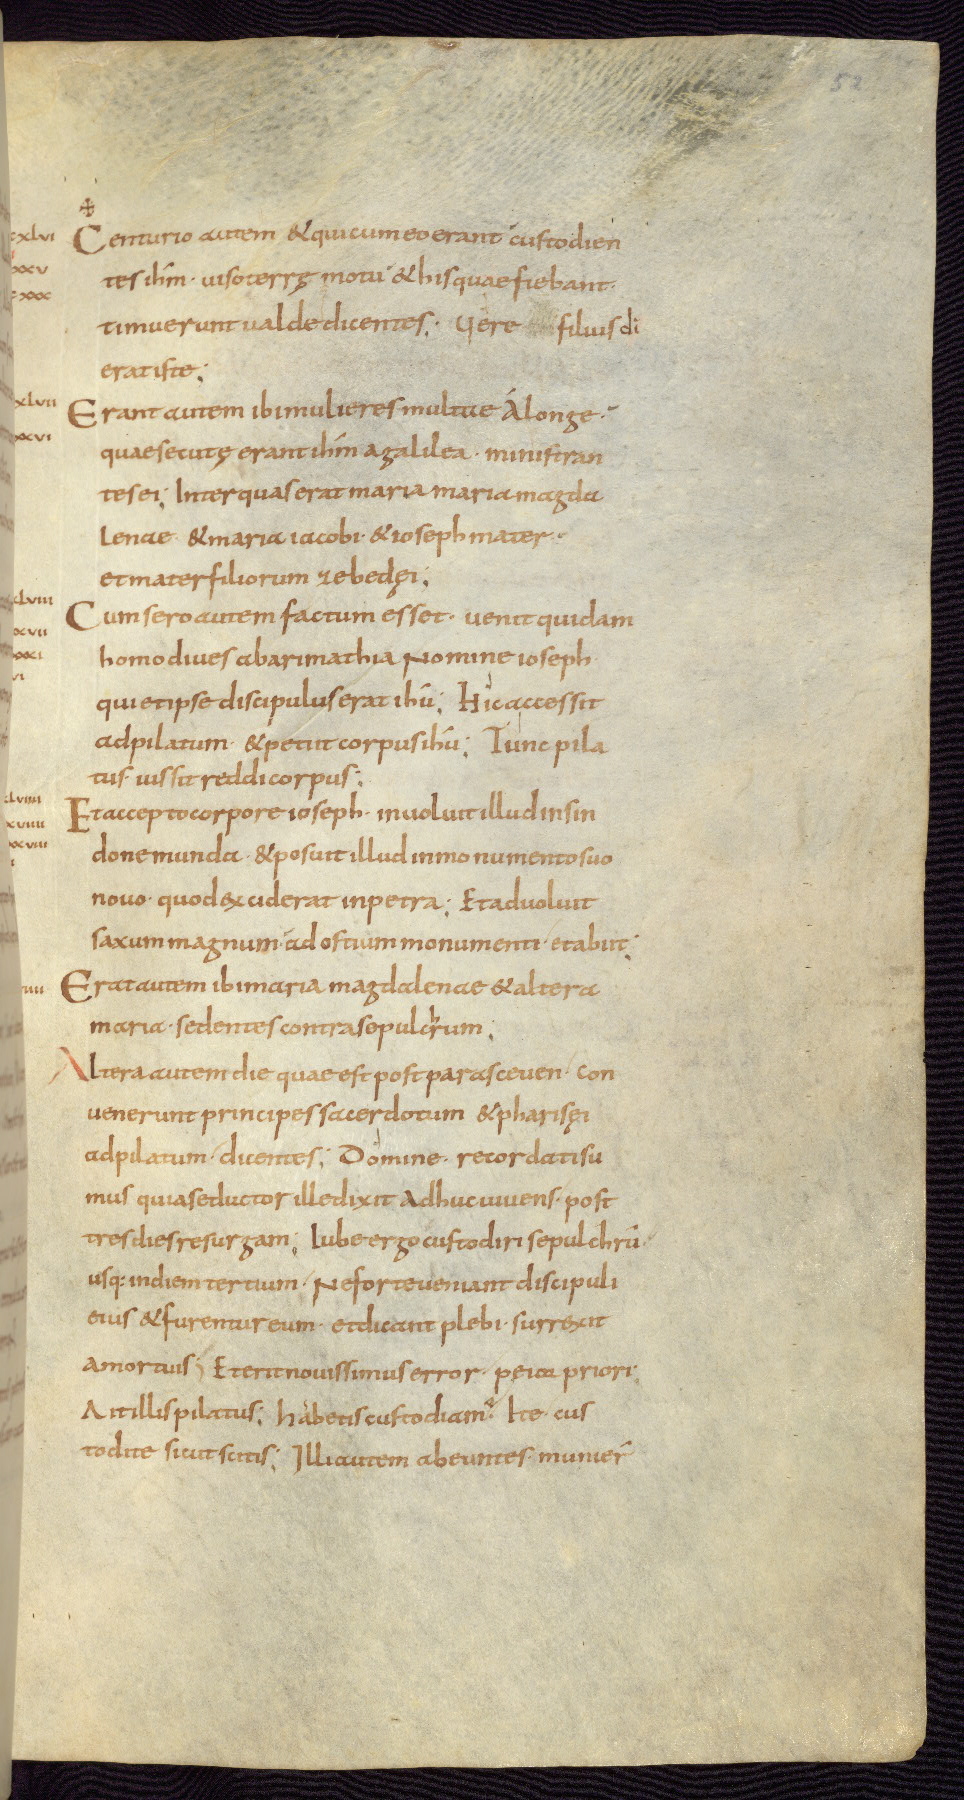 52
Centurio autem & qui cum eo erant custodien
tes ihm̅ · uiso terrę motu & his quae fiebant ·
timuerunt ualde dicentes; Uere filius di̅
erat iste;
Erant autem ibi mulieres multae A longe ·
quae secutę erant ihm̅ a galilea · ministran
tes ei; Inter quas erat maria maria magda
lenae · & maria iacobi · & ioseph mater ·
et mater filiorum zebedęi;
Cum sero autem factum esset · uenit quidam
homo diues ab arimathia Nomine ioseph ·
qui et ipse discipulus erat ihu̅; Hic accessit
ad pilatum · & petiit corpus ihu̅; Tunc pila
tus iussit reddi corpus;
Et accepto corpore ioseph · inuoluit illud in sin
done munda · & posuit illud in monumento suo
nouo · quod exciderat in petra; Et aduoluit
saxum magnum · ad ostium monumenti · et abiit;
Erat autem ibi maria magdalenae & altera
maria · sedentes contra sepulchrum;
Altera autem die quae est post parasceuen · Con
uenerunt principes sacerdotum & pharisęi
ad pilatum · dicentes; Domine · recordati su
mus quia seductor ille dixit Adhuc uiuens · post
tres dies resurgam; Iube ergo custodiri sepulchru̅ ·
usq: in diem tertium · Ne forte ueniant discipuli
eius & furentur eum · et dicant plebi · surrexit
a mortuis; Et erit nouissimus error · peior priori;
Ait illis pilatus; habetis custodiam? Ite · cus
todite sicut scitis; Illi autem abeuntes · munier̅